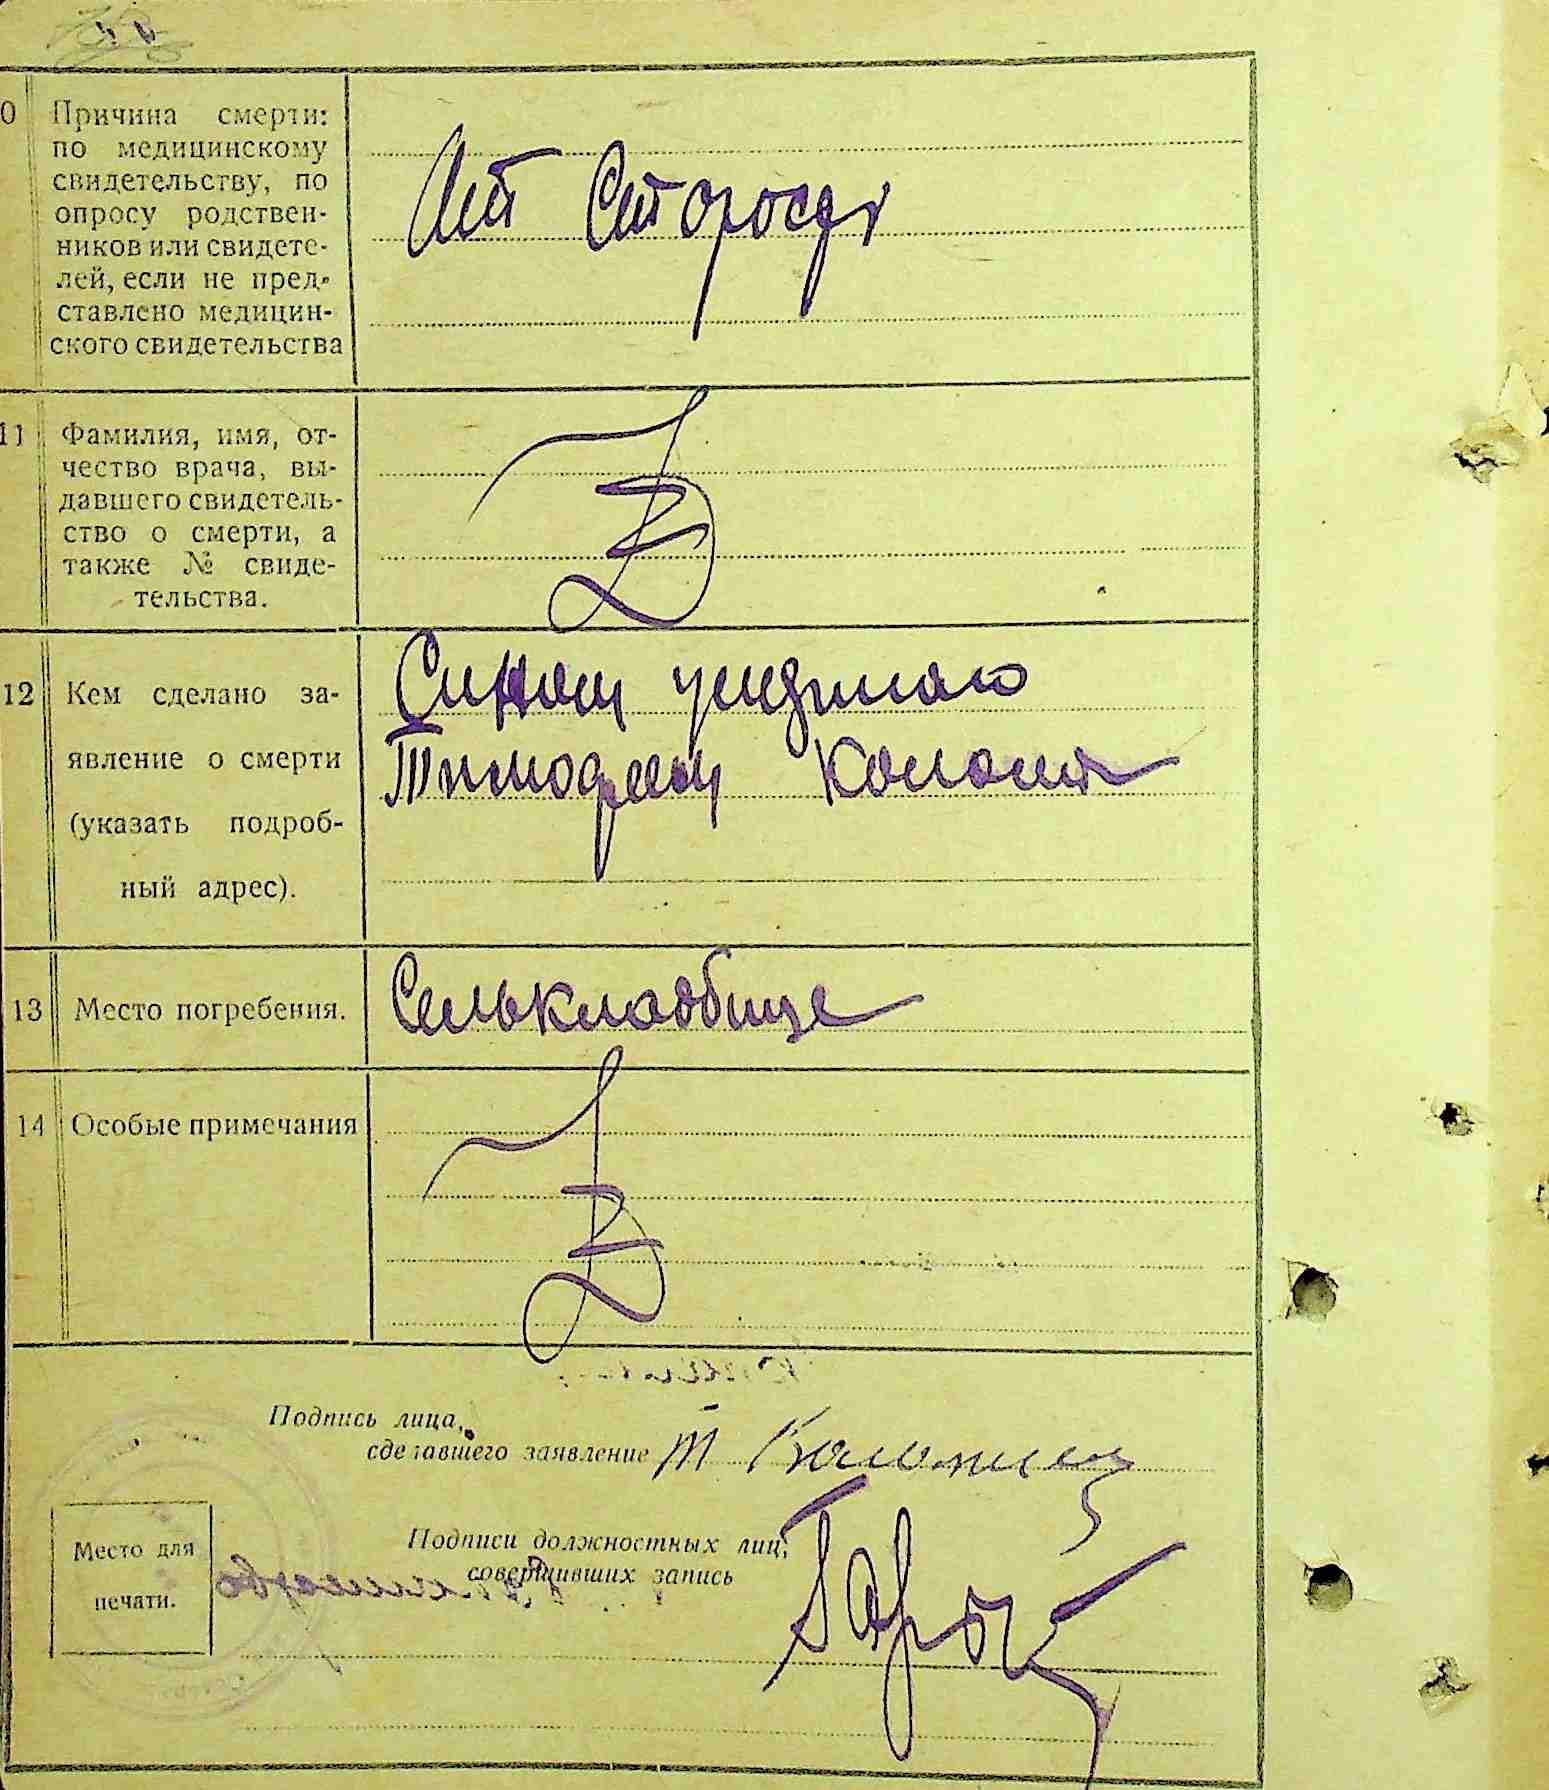 0 Причина смерти:
по медицинскому
свидетельству, по
опросу родствен-
ников или свидете-
лей, если не пред-
ставлено медицин-
ского свидетельства
От Старосды
11 Фамилия, имя, от-
чество врача, вы-
давшего свидетель-
ство о смерти, а
также № свиде-
тельства.
12 Кем сделано за-
явление о смерти
(указать подроб-
ный адрес).
Сином
Тимофеем
13 Место погребения.
Селькладбище
14 Особые примечания
Подпись лица,
сделавшего заявление Т
Подписи должностных лиц,
совершивших запись
Место для
печати.